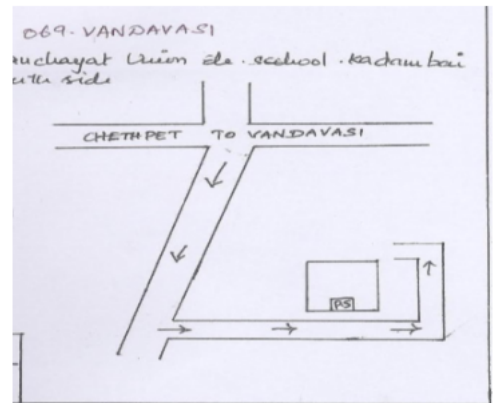 069. VANDAVASI
uuchayat Union ele. scehool. kadambai
uth side
CHETHPET TO VANDAVASI
PS